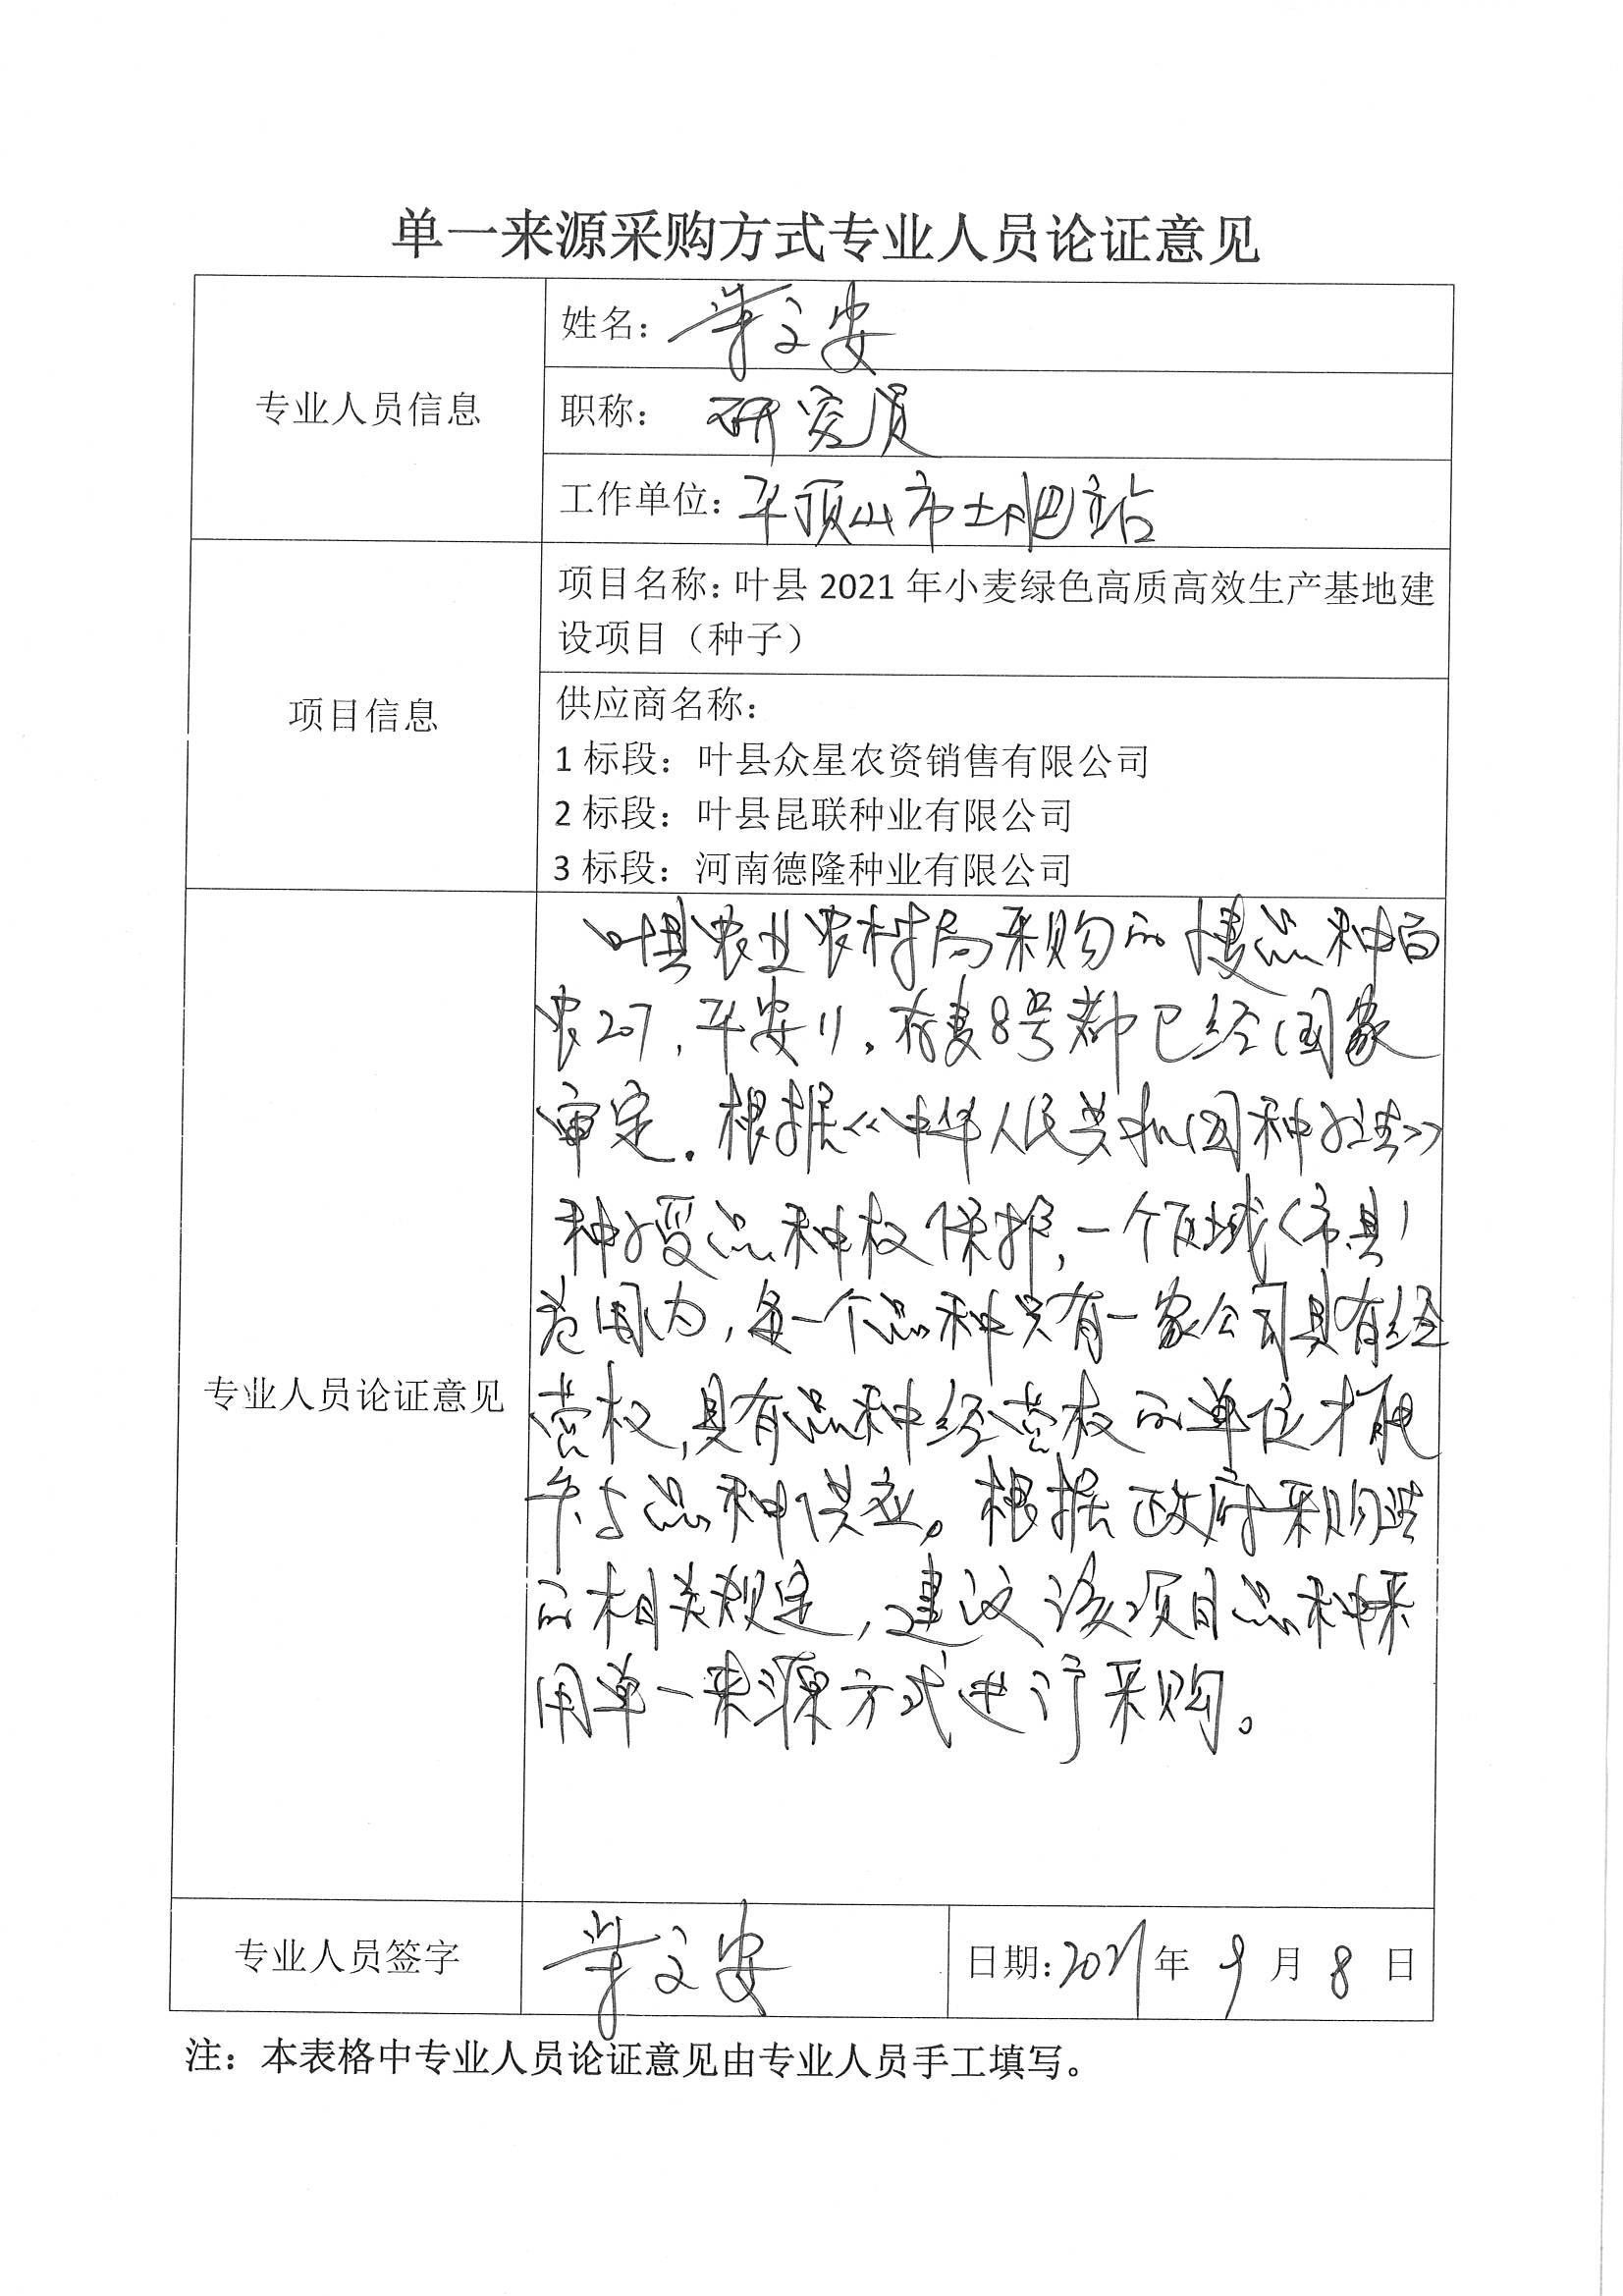 单一来源采购方式专业人员论证意见
专业人员信息
姓名：文安
职称：研究员
工作单位：平顶山市土肥站
项目信息
项目名称：叶县 2021 年小麦绿色高质高效生产基地建
设项目（种子）
供应商名称：
1 标段：叶县众星农资销售有限公司
2 标段：叶县昆联种业有限公司
3 标段：河南德隆种业有限公司
专业人员论证意见
叶县农业农村局采购的品种百
农207，平安11，存麦8号都已经国家
审定。根据《中华人民共和国种子法》
种子受品种权保护，一个区域（市县）
范围内，每一个品种只有一家公司具有经
营权，具有品种经营权的单位才能
参与品种供应。根据政府采购法
的相关规定，建议该项目品种采
用单一来源方式进行采购。
专业人员签字
文安
日期：2021年 9 月 8 日
注：本表格中专业人员论证意见由专业人员手工填写。